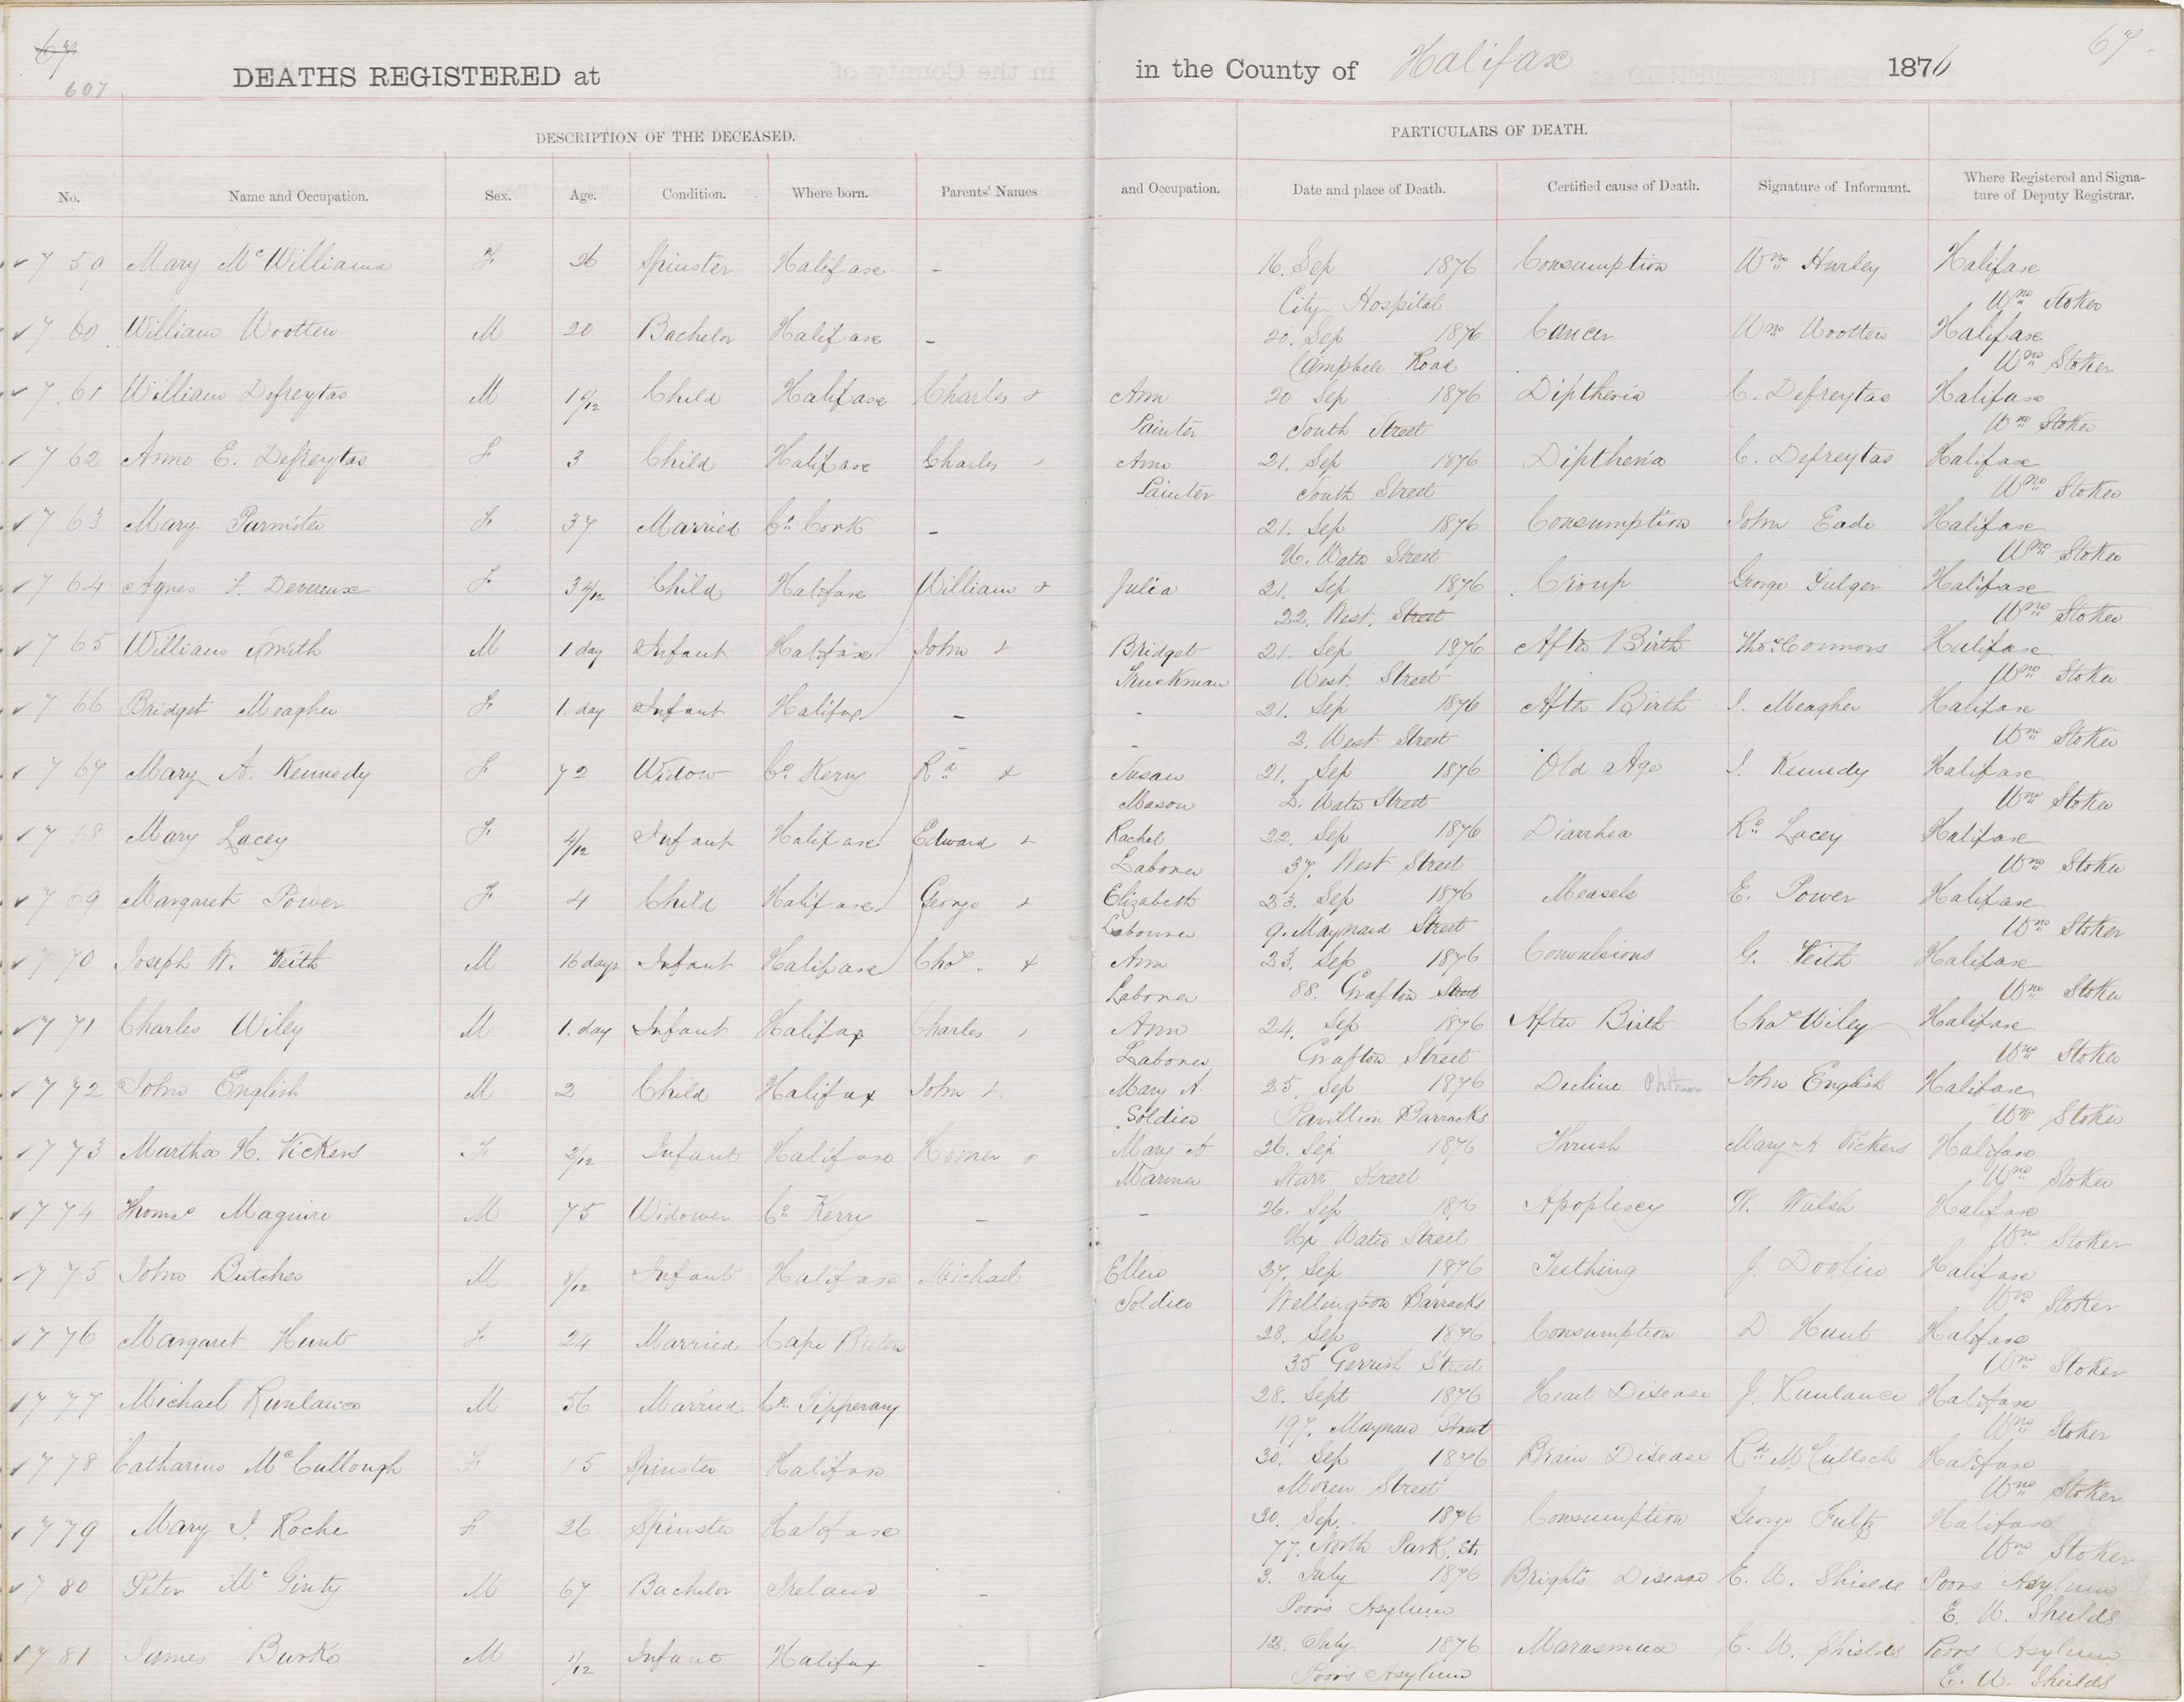 67
607
DEATHS REGISTERED at in the County of Halifax 1876
67
DESCRIPTION OF THE DECEASED. PARTICULARS OF DEATH.
No. Name and Occupation. Sex. Age. Condition. Where born. Parents' Names and Occupation. Date and place of Death. Certified cause of Death. Signature of Informant. Where Registered and Signa-
ture of Deputy Registrar.
759 Mary McWilliams F 26 Spinster Halifax - 16. Sep 1876 Consumption Wm Hurley Halifax
City Hospital Wm Stoker
760 William Wootten M 20 Bachelor Halifax - 20. Sep 1876 Cancer Wm Wootten Halifax
Campbell Road Wm Stoker
761 William Defreytas M 1 6/12 Child Halifax Charles & Ann 20 Sep 1876 Diptheria C. Defreytas Halifax
Painter South Street Wm Stoker
762 Anne E. Defreytas F 3 Child Halifax Charles Ann 21. Sep 1876 Diptheria C. Defreytas Halifax
Painter South Street Wm Stoker
763 Mary Parmiter F 37 Married Co. Cork - 21. Sep 1876 Consumption John Eade Halifax
U. Water Street Wm Stoker
764 Agnes F. Devereux F 3 4/12 Child Halifax William & Julia 21. Sep 1876 Croup George Fulger Halifax
22. West. Street Wm Stoker
765 William Smith M 1 day Infant Halifax John & Bridget 21. Sep 1876 After Birth Thos. Connors Halifax
Truckman West. Street Wm Stoker
766 Bridget Meagher F 1. day Infant Halifax - - 21. Sep 1876 After Birth J. Meagher Halifax
- 2. West Street Wm Stoker
767 Mary A. Kennedy F 72 Widow Co. Kerry Rd & Susan 21. Sep 1876 Old Age J. Kennedy Halifax
Mason L. Water Street Wm Stoker
768 Mary Lacey F 4/12 Infant Halifax Edward & Rachel 22. Sep 1876 Diarrhea Rd. Lacey Halifax
Laborer 37. West Street Wm Stoker
769 Margaret Power F 4 Child Halifax George & Elizabeth 23. Sep 1876 Measels E. Power Halifax
Labourer 9. Maynard Street Wm Stoker
770 Joseph W. Veith M 16 days Infant Halifax Chas. & Ann 23. Sep 1876 Convulsions G. Veith Halifax
Laborer 88. Grafton Street Wm Stoker
771 Charles Wiley M 1. day Infant Halifax Charles Ann 24. Sep 1876 After Birth Chas Wiley Halifax
Laborer Grafton Street Wm Stoker
772 John English M 2 Child Halifax John & Mary A. 25. Sep 1876 Decline John English Halifax
Soldier Pavillion Barracks Wm Stoker
773 Martha H. Vickers F 2/12 Infant Halifax Homer & Mary A 26. Sep 1876 Thrush Mary A Vickers Halifax
Mariner Starr Street Wm Stoker
774 Thomas Maguire M 75 Widower Co. Kerry - - 26. Sep 1876 Apoplexy W. Walsh Halifax
Up Water Street Wm Stoker
775 John Butcher M 8/12 Infant Halifax Michael Ellen 27. Sep 1876 Teething J. Doolin Halifax
Soldier Wellington Barracks Wm Stoker
776 Margaret Hunt F 24 Married Cape Breton 28. Sep 1876 Consumption D. Hunt Halifax
35 Gerrish Street Wm Stoker
777 Michael M 56 Married Co. Tipperary 28. Sept 1876 Heart Disease J. Halifax
197. Maynard Street Wm Stoker
778 Catharine McCullough F 15 Spinster Halifax 30. Sep 1876 Brain Disease Rd McCulloch Halifax
Moren Street Wm Stoker
779 Mary J. Roche F 26 Spinster Halifax 30. Sep. 1876 Consumption George Fultz Halifax
77. North Park. St. Wm Stoker
780 Peter McGinty M 67 Bachelor Ireland - 3. July 1876 Brights Disease E. W. Shields Poors Asylum
Poors Asylum E. W. Sheilds
781 James Burke M 1/12 Infant Halifax - 12. July 1876 Marasmus E. W. Shields Poors Asylum
Poors Asylum E. W. Sheilds